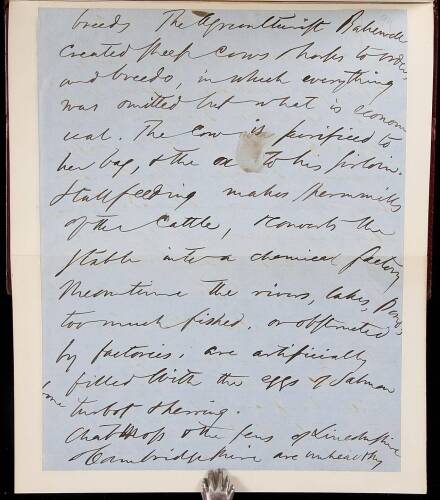 breeds The Agriculturist Bakewell
created sheep cows horses to order
and breeds, in which everything
was omitted but what is econom
ical. The cow is sacrificed to
her bag, & the ox to his sirloin.
Stallfeeding makes spermmills
of the cattle, & converts the
stable into a chemical factory
Meantime the rivers, lakes, ponds
too much fished, or obstructed
by factories, are artificially
filled with the eggs of salmon
some turbot & herring.
Chat Moss & the fens of Lincolnshire
& Cambridgeshire are unhealthy